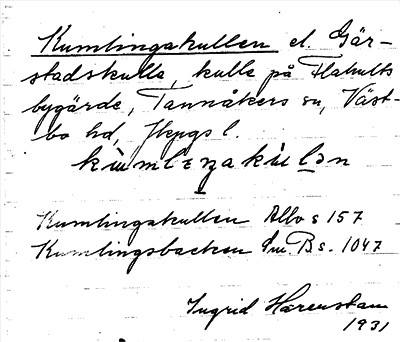 Kumlingakullen el. Gär-
stadskulle, kulle på Flahults
bygärde, Tannåkers sn, Väst-
bo hd, Jkpgs l.
Kumlingakullen Allbo s 157
Kumlingsbacken Sm. B s. 1047
Ingrid Härenstam
1931